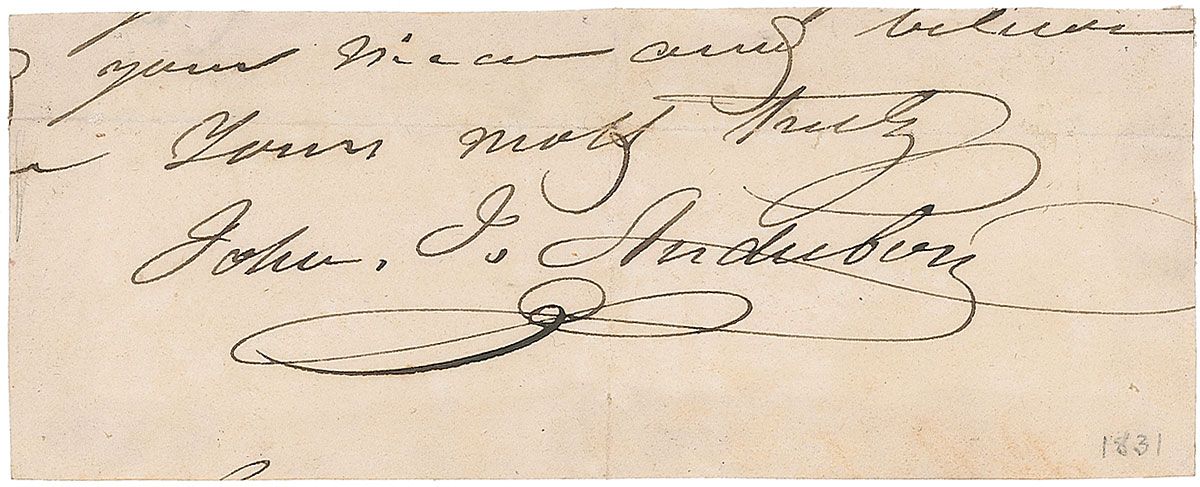 your view and believe
Yours most truly
John. J. Audubon
1831